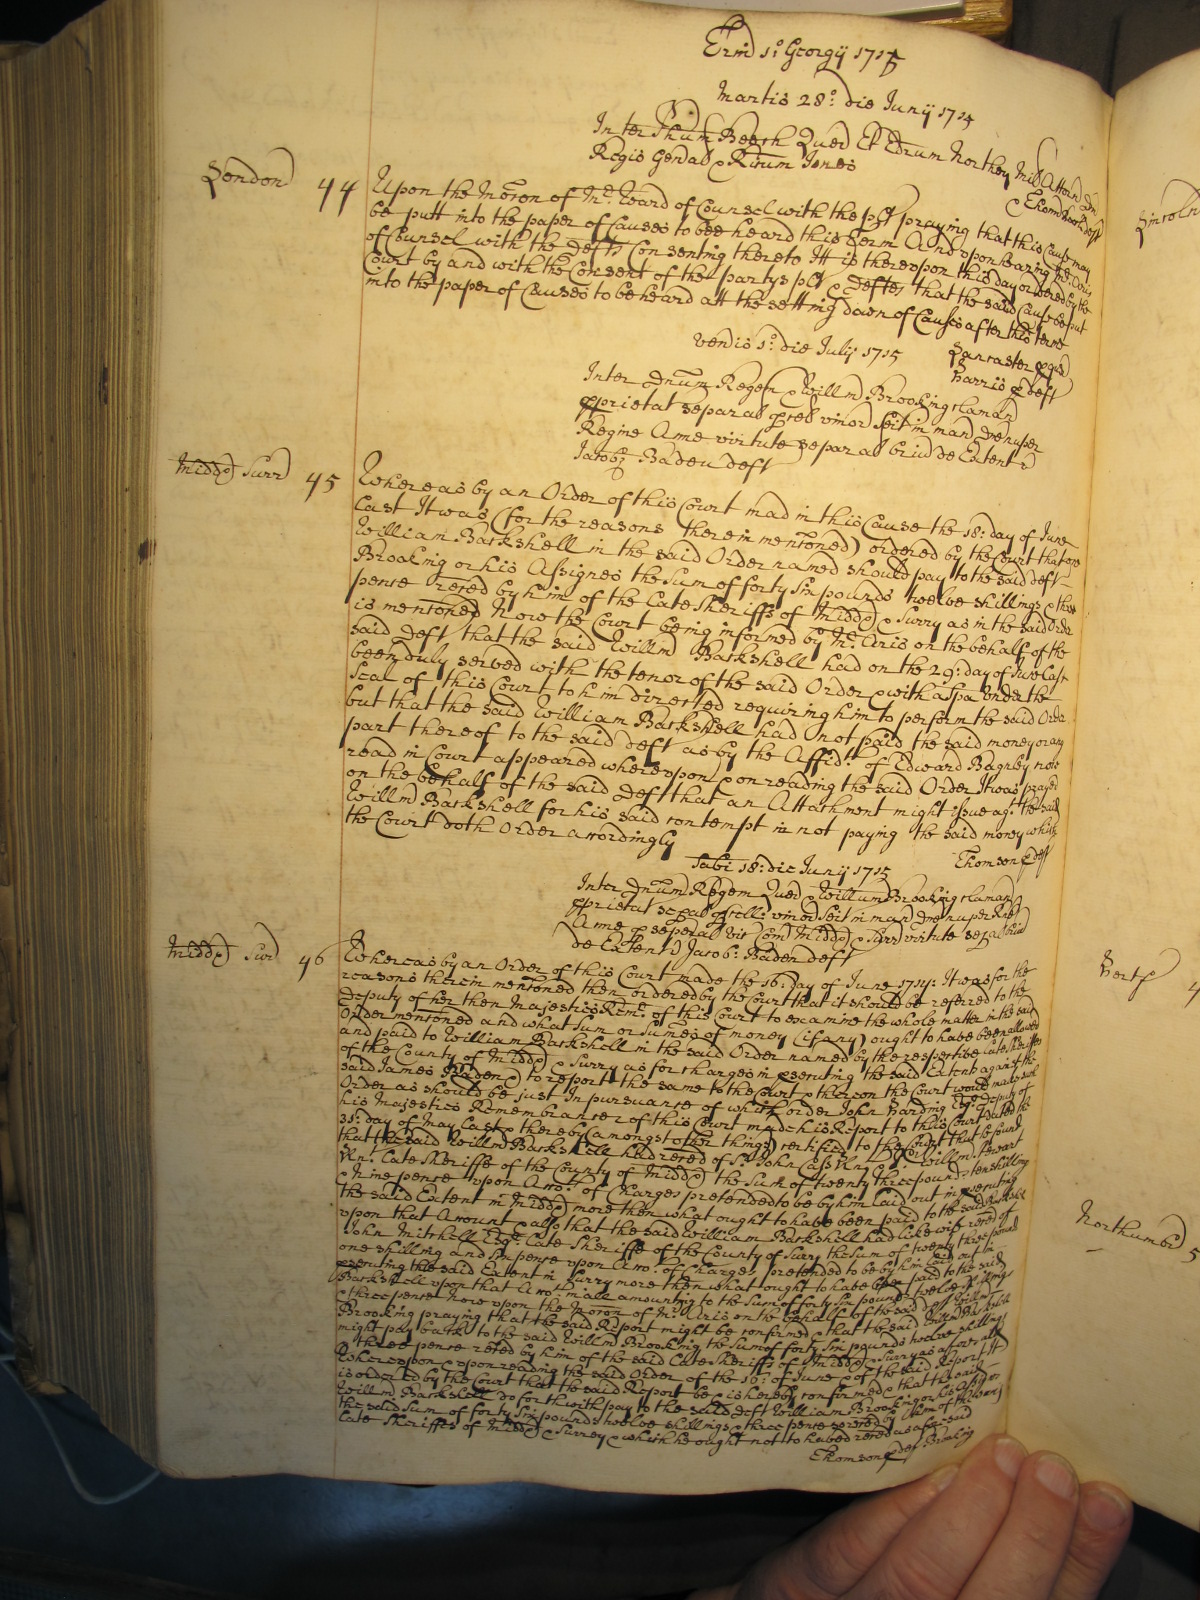 Trin 1o Georgij 1715
Martis 28o: die Junij 1715
Inter Beech Quer Et Edrum Northey Mil Attorn Dn
Regis Genal & Ricum Jones
Thomson & deft
London 44 Upon the Moтion of Mr. Ward of Counsel with the plt praying that this Cause may
be putt into the paper of Causes to bee heard this Term And upon hearing Mr. Aris
of Counsel with the Defts Consenting thereto It is thereupon this day ordered by the
Court by and with the Consent of the partys plt & Deftes that the said Cause be put
into the paper of Causes to be heard att the setting down of Causes after this terme
Lancaster p quer
Harris p deft
Venris 1o: die July 1715
Inter Dnum Regem & Willm Brooking
pprietat separal vinor Seit in man Dne nuper
Regine Anne virtute separal briu de Extent &
Jacob: Baden deft
Middx Surr 45 Whereas by an Order of this Court mad in this Cause the 18: day of June
Last It was (for the reasons therein mentoned) ordered by the Court that one
William Barkshell in the said Order named should pay to the said deft
Brooking or his Assignes the Sum of forty Six pounds twelve shillings & three
pense reced by him of the Late Sheriffs of Middx & Surry as in the said Order
is mentoned Now the Court being informed by Mr. Aris on the behalf of the
said Deft that the said Willm Barkshell had on the 29: day of June Last
been duly served with the tenor of the said Order & with a Spa under the
Seal of this Court to him directed requiring him to perform the said Order
but that the said William Barkshell had not paid the said money or any
part thereof to the said Deft as by the Affidt. of Edward Bagnley now
read in Court appeared whereupon & on reading the said Order It was prayed
on the behalf of the said Deft that an Attachment might issue agt. the said
Willm Barkshell for his said contempt in not paying the said money which
the Court doth Order accordingly
Thomson p deft
Sabi 18: die Junij 1715
Inter Dnum Regem Quer & Willum Brooking
pprietat sepal vinor Seit in man Dne nuper Rne
Anne p seperal vic Com Middx & Surr virtute sepal briu
de Extent & Jacob: Baden deft
Middx Sur 46 Whereas by an Order of this Court made the 16: day of June 1714: It was for the
reasons therein mentoned then ordered by the Court that it should be referred to the
Deputy of her then Majesties Remr. of this Court to examine the whole matter in the said
Order mentoned and what Sum or Sumes of money (if any) ought to have been allowed
and paid to William Barkshell in the said Order named by the respective Late Sheriffes
of the County of Middx & Surry as for charges in executing the said Extents against the
said James Baden & to report the same to the Court & thereon the Court would make such
Order as should be just In pursuance of which order John Harding Esqr. Deputy of
his Majesties Remembrancer of this Court made his Report to this Court Dated the
31: day of May Last & thereby (amongst other things) certified to the Court that he found
that the said Willm Barkshell had reced of Sr. John Cass Knt & Willm Stewart
Knt. Late Sheriffe of the County of Middx the Sum of twenty three pounds tenshilling
& Nine pense upon Acco: of Charges pretended to be by him Laid out in executing
the said Extent in Middx more then what ought to have been paid to the said Barkshell
upon that Account & also that the said William Barkshell had likewise reced of
John Mitchell Esqr. Late Sheriffe of the County of Surry the Sum of twenty three pounds
one shilling and Six pense upon Acco. of Charges pretended to be by him Laid out in
executing the said Extent in Surry more then what ought to have been paid to the said
Barkshell upon that Acco: in all amounting to the Sum of forty Six pounds twelve shillings
& three pense Now upon the Motion of Mr. Aris on the behalf of the said Deft Willm
Brooking praying that the said Report might be confirmed & that the said Willm Barkshell
might pay back to the said Willm Brooking the Sum of forty Six pounds twelve shillings
& three pense reced by him of the said Late Sheriffs of Middx & Surry as aforesaid
Whereupon & upon reading the said Order of the 16: of June & of the said Report It
is ordered by the Court that the said Report be & is hereby confirmed & that the said
Willm Barkshell do forthwith pay to the said Deft William Brooking or his Assignes
the said Sum of forty Six pounds twelve shillings & three pense reced by him of the
Late Sheriffs of Middx & Surrey & which he ought not to have reced as aforesaid
Thomson p deft Brooking
Lincoln
Hertf
Northumbr